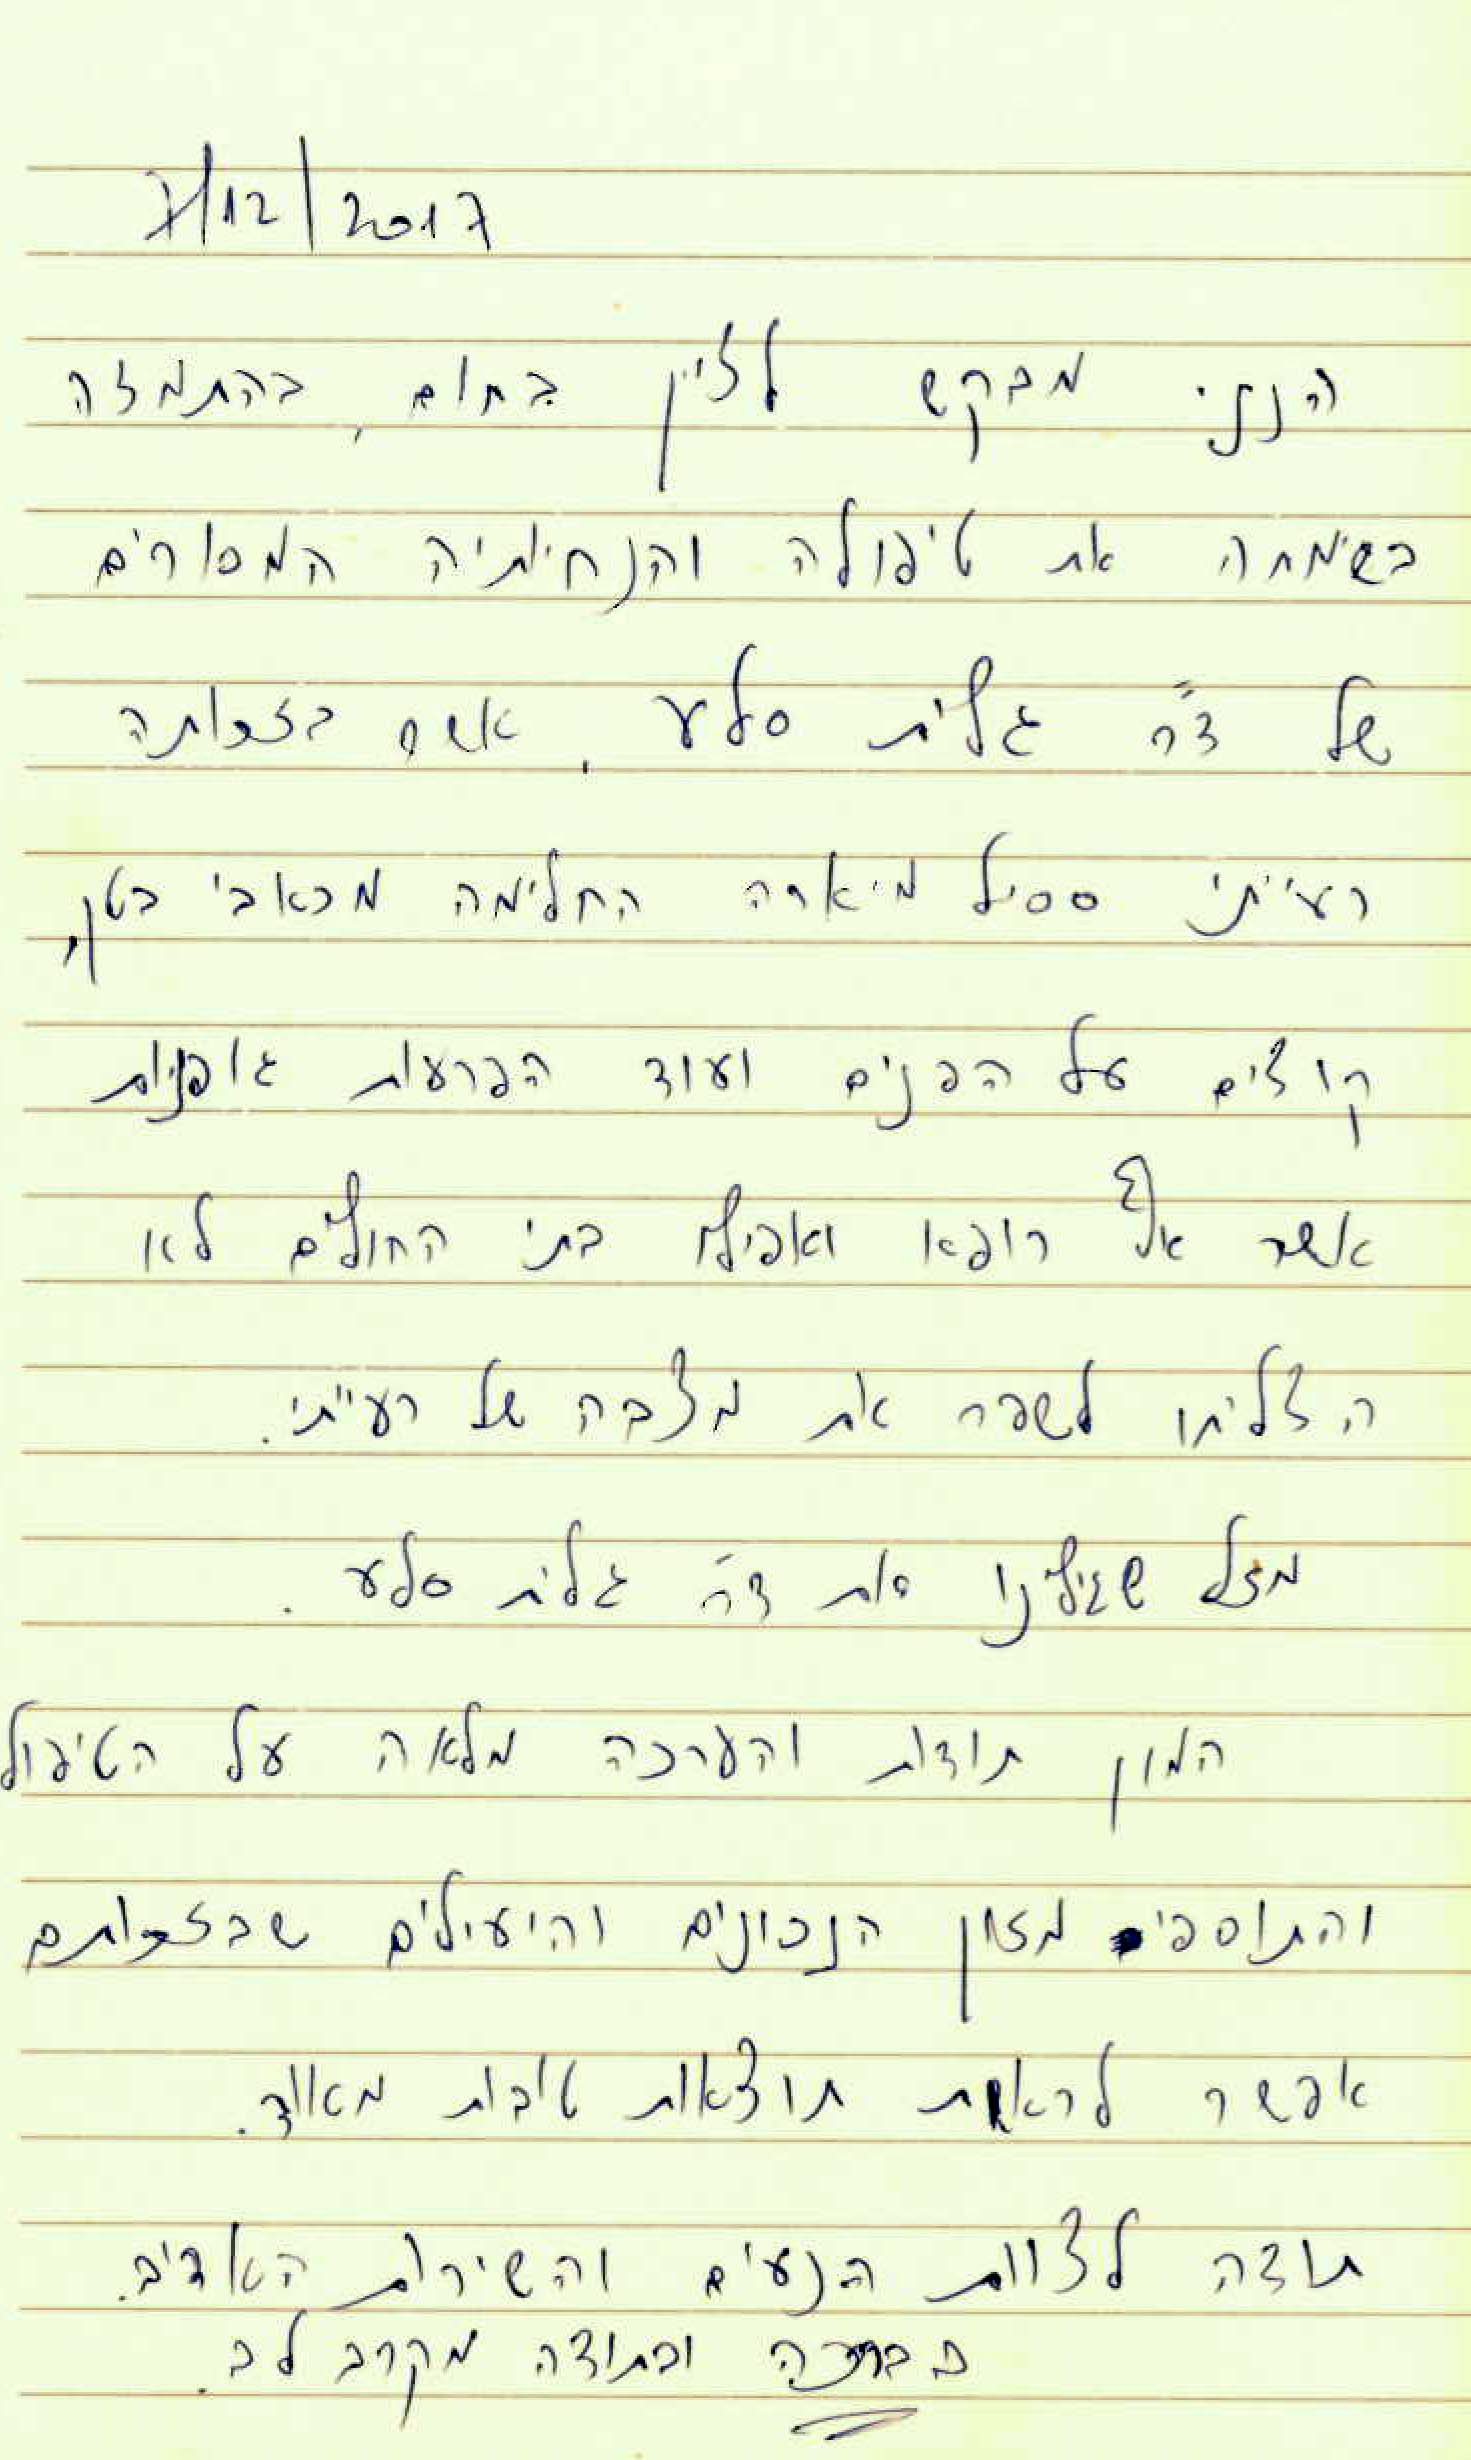 7/12/2017
הנני מבקש לציין בחום, בהתמדה
בשימחה את טיפולה והנחיתיה המסורים
של ד"ר גלית סלע, אשר בזכותה
רעייתי ססיל מיארה החלימה מכאבי בטן,
קוצים על הפנים ועוד הפרעות גופניות
אשר אף רופא ואפילו בתי החולים לא
הצליחו לשפר את מצבה של רעייתי.
מזל שגילינו את ד"ר גלית סלע.
המון תודות והערכה מלאה על הטיפול
והתוספי מזון הנכונים והיעילים שבזכותם
אפשר לראות תוצאות טובות מאוד.
תודה לצוות הנעים והשירות האדיב.
בברכה ובתודה מקרב לב.